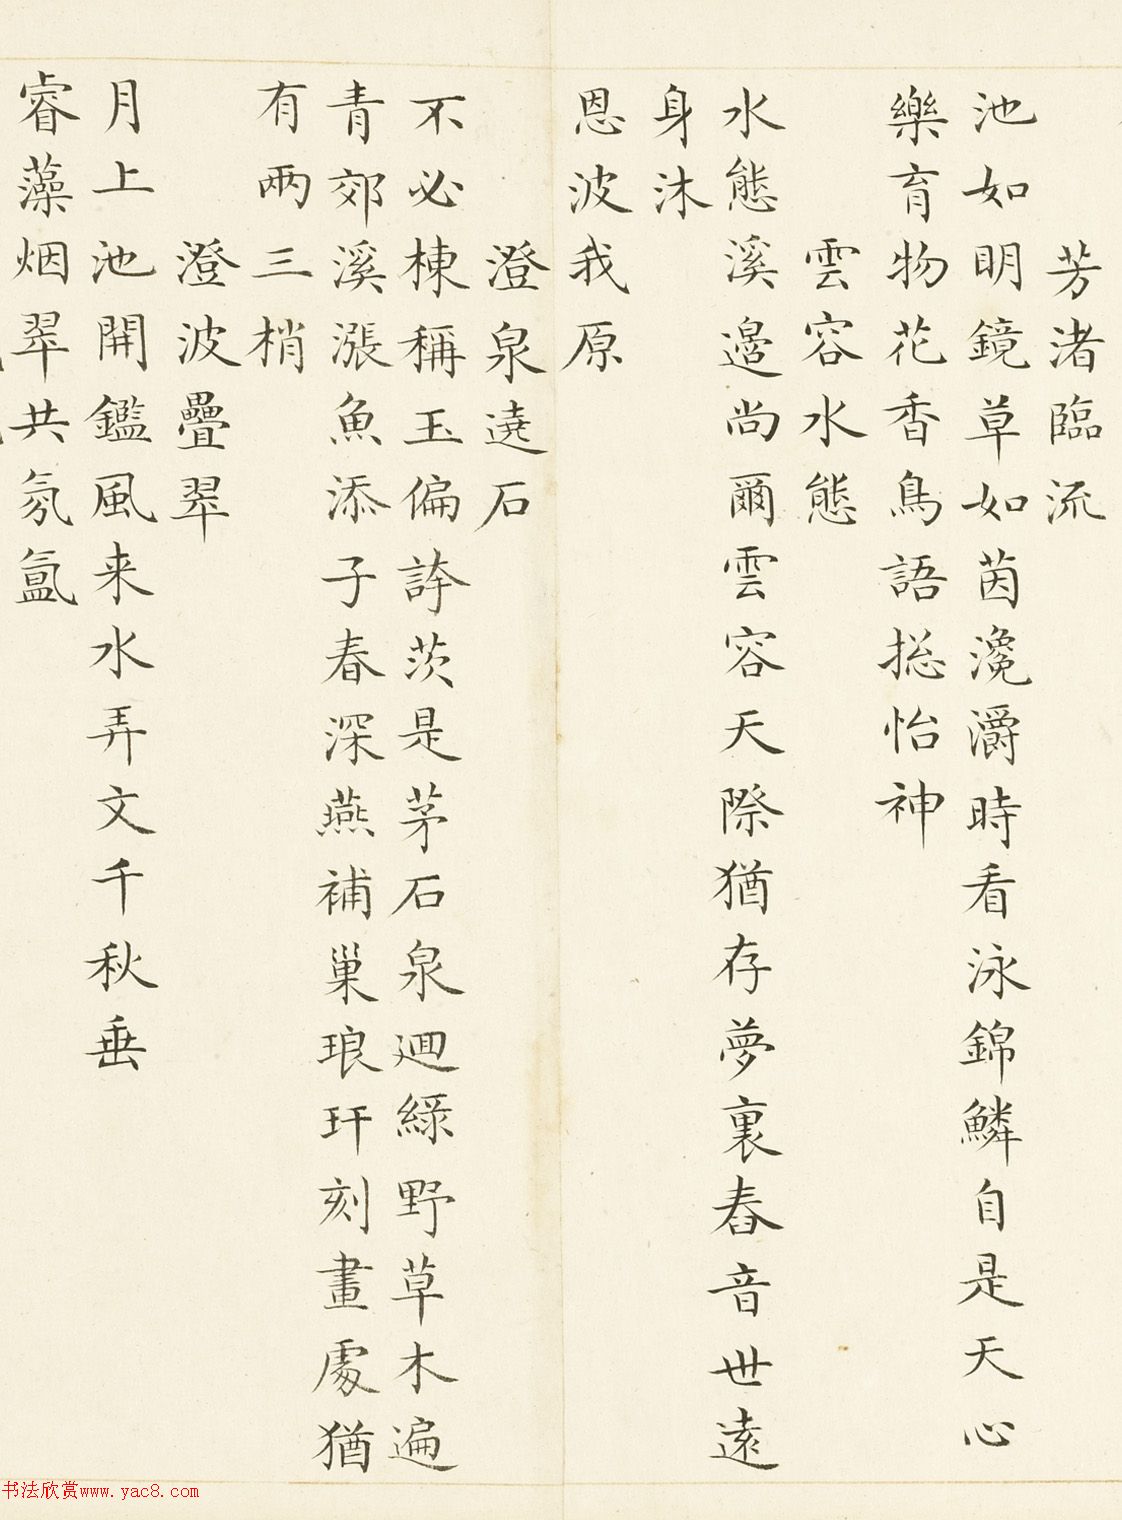 芳渚臨流
池如明鏡草如茵瀺灂時看泳錦鱗自是天心
樂育物花香鳥語摠怡神
雲容水態
水態溪邊尚爾雲容天際猶存夢裏舂音世遠
身沐
恩波我原
澄泉遶石
不必棟稱玉偏誇茨是茅石泉迴綠野草木遍
青郊溪漲魚添子春深燕補巢琅玕刻畫處猶
有兩三梢
澄波疊翠
月上池開鑑風来水弄文千秋垂
睿藻烟翠共氛氲
书法欣赏www.yac8.com